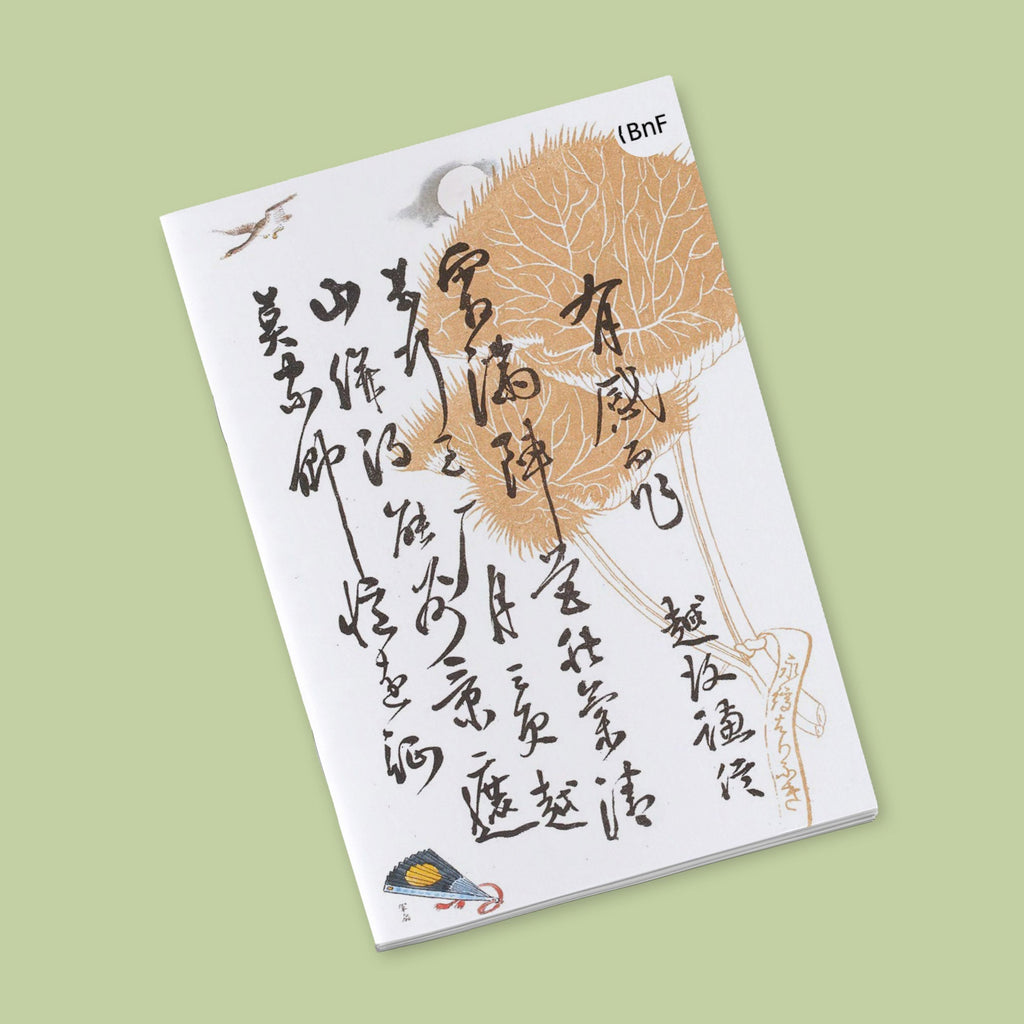 {BnF
有感而作
越 謙信
霜満陣営秋気清
数行過雁月三更越
山併得能州景遮
莫家郷憶遠征
軍扇